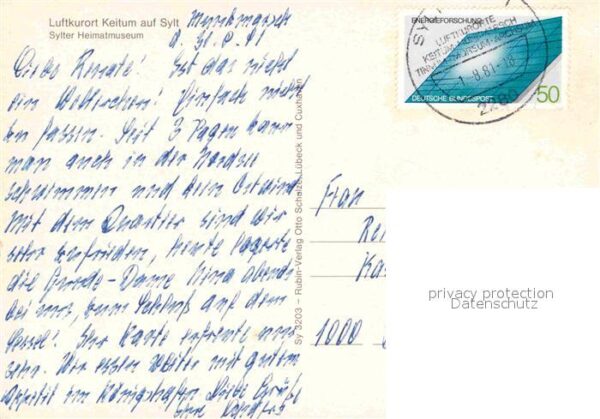 Luftkurort Keitum auf Sylt
Sylter Heimatmuseum
Liebe Renate! Ist das nicht
ein Wetterchen! Einfach nicht
zu fassen. Seit 3 Tagen kann
man auch in der Nordsee
schwimmen und kein Ostwind
Mit dem Quartier sind wir
sehr zufrieden, heute lagerte
die Hunde-Dame Nina abends
bei uns, zum Schluß auf dem
Sessel! Ihr Karte erfreute uns
sehr. Wir essen weiter mit gutem
Appetit im Königshafen Liebe Grüße
Sy 3203 – Rubin-Verlag Otto Schulze, Lübeck und Cuxhaven
ENERGIEFORSCHUNG
DEUTSCHE BUNDESPOST
50
LUFTKURORTE
KEITUM
1.9.81
Frau
Re
Ka
1000
privacy protection
Datenschutz